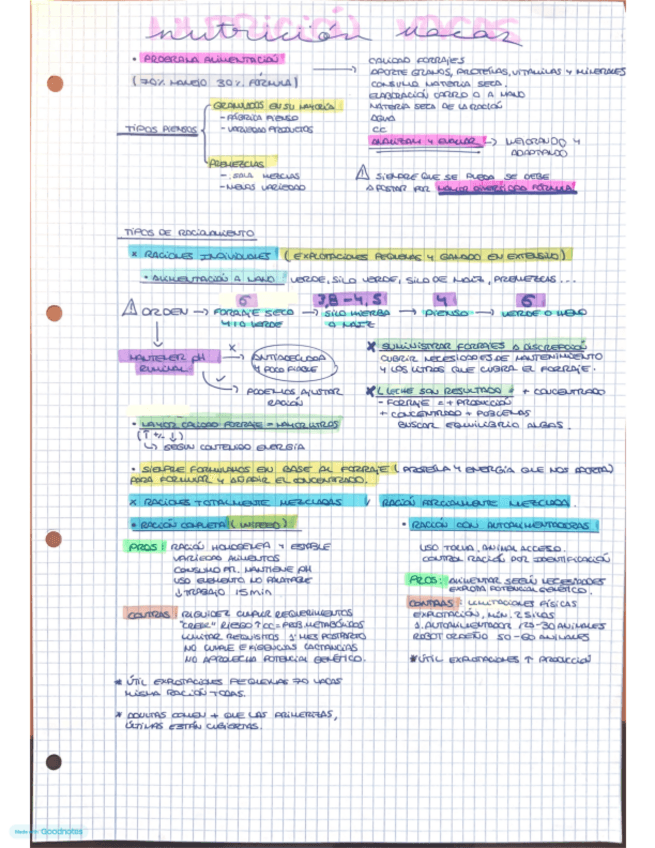 NUTRICIÓN VACAS
nutrición vacas
• PROGRAMA ALIMENTACIÓN
(70% MANEJO 30% FÓRMULA)
CALIDAD FORRAJES
APORTE GRANOS, PROTEÍNAS, VITAMINAS Y MINERALES
CONSUMO MATERIA SECA
ELABORACIÓN CARRO O A MANO
MATERIA SECA DE LA RACIÓN
AGUA
CC
ANALIZAR Y EVALUAR → MEJORANDO Y
ADAPTANDO
TIPOS PIENSOS
GRANULADOS EN SU MAYORÍA
- FÁBRICA PIENSO
- VARIEDAD PRODUCTOS
PREMEZCLAS
- SOLO MEZCLAS
- MENOS VARIEDAD
⚠ SIEMPRE QUE SE PUEDA SE DEBE
APOSTAR POR MAYOR DIVERSIDAD FÓRMULA
TIPOS DE RACIONAMIENTO
* RACIONES INDIVIDUALES (EXPLOTACIONES PEQUEÑAS Y GANADO EN EXTENSIVO)
• ALIMENTACIÓN A MANO: VERDE, SILO VERDE, SILO DE MAÍZ, PREMEZCLAS...
6 3,8-4,5 4 6
⚠ ORDEN → FORRAJE SECO → SILO HIERBA → PIENSO → VERDE O HENO
Y/O VERDE O MAÍZ
MANTENER pH
RUMINAL
ANTICUADA
Y POCO FIABLE
PODEMOS AJUSTAR
RACIÓN
* SUMINISTRAR FORRAJES A DISCRECIÓN
CUBRIR NECESIDADES DE MANTENIMIENTO
Y LOS LITROS QUE CUBRA EL FORRAJE.
* L LECHE SON RESULTADO = + CONCENTRADO
- FORRAJE = + PRODUCCIÓN
+ CONCENTRADO + PROBLEMAS
BUSCAR EQUILIBRIO
• MAYOR CALIDAD FORRAJE = MAYOR LITROS
↳ SEGÚN CONTENIDO ENERGÍA
• SIEMPRE FORMULAMOS EN BASE AL FORRAJE (PROTEÍNA Y ENERGÍA QUE NOS APORTA)
PARA FORMULAR Y AÑADIR EL CONCENTRADO.
* RACIONES TOTALMENTE MEZCLADAS
RACIÓN PARCIALMENTE MEZCLADA.
• RACIÓN COMPLETA (UNIFEED)
• RACIÓN CON AUTOALIMENTADORAS
PROS: RACIÓN HOMOGÉNEA Y ESTABLE
VARIEDAD ALIMENTOS
CONSUMO PR. MANTIENE pH
USO ELEMENTO NO PALATABLE
↓ TRABAJO 15 min
USO TOLVA, ANIMAL ACCESO.
CONTROL RACIÓN POR IDENTIFICACIÓN
PROS: ALIMENTAR SEGÚN NECESIDADES
EXPLOTA POTENCIAL GENÉTICO.
CONTRAS: RIGUIDEZ CUMPLIR REQUERIMIENTOS
"CREEP" RIESGO ↑ CC = PROB. METABÓLICOS
LIMITAR REQUISITOS 1er MES POSTPARTO
NO CUMPLE EXIGENCIAS LACTANCIAS
NO APROVECHA POTENCIAL GENÉTICO.
CONTRAS: LIMITACIONES FÍSICAS
EXPLOTACIÓN, MÍN. 2 SILOS
1 AUTOALIMENTADOR /25-30 ANIMALES
ROBOT ORDEÑO 50-60 ANIMALES
* ÚTIL EXPLOTACIONES ↑ PRODUCCIÓN
* ÚTIL EXPLOTACIONES PEQUEÑAS 70 VACAS
MISMA RACIÓN TODAS.
* ADULTAS COMEN + QUE LAS PRIMERIZAS,
ÚLTIMAS ESTÁN CUBIERTAS.
Goodnotes